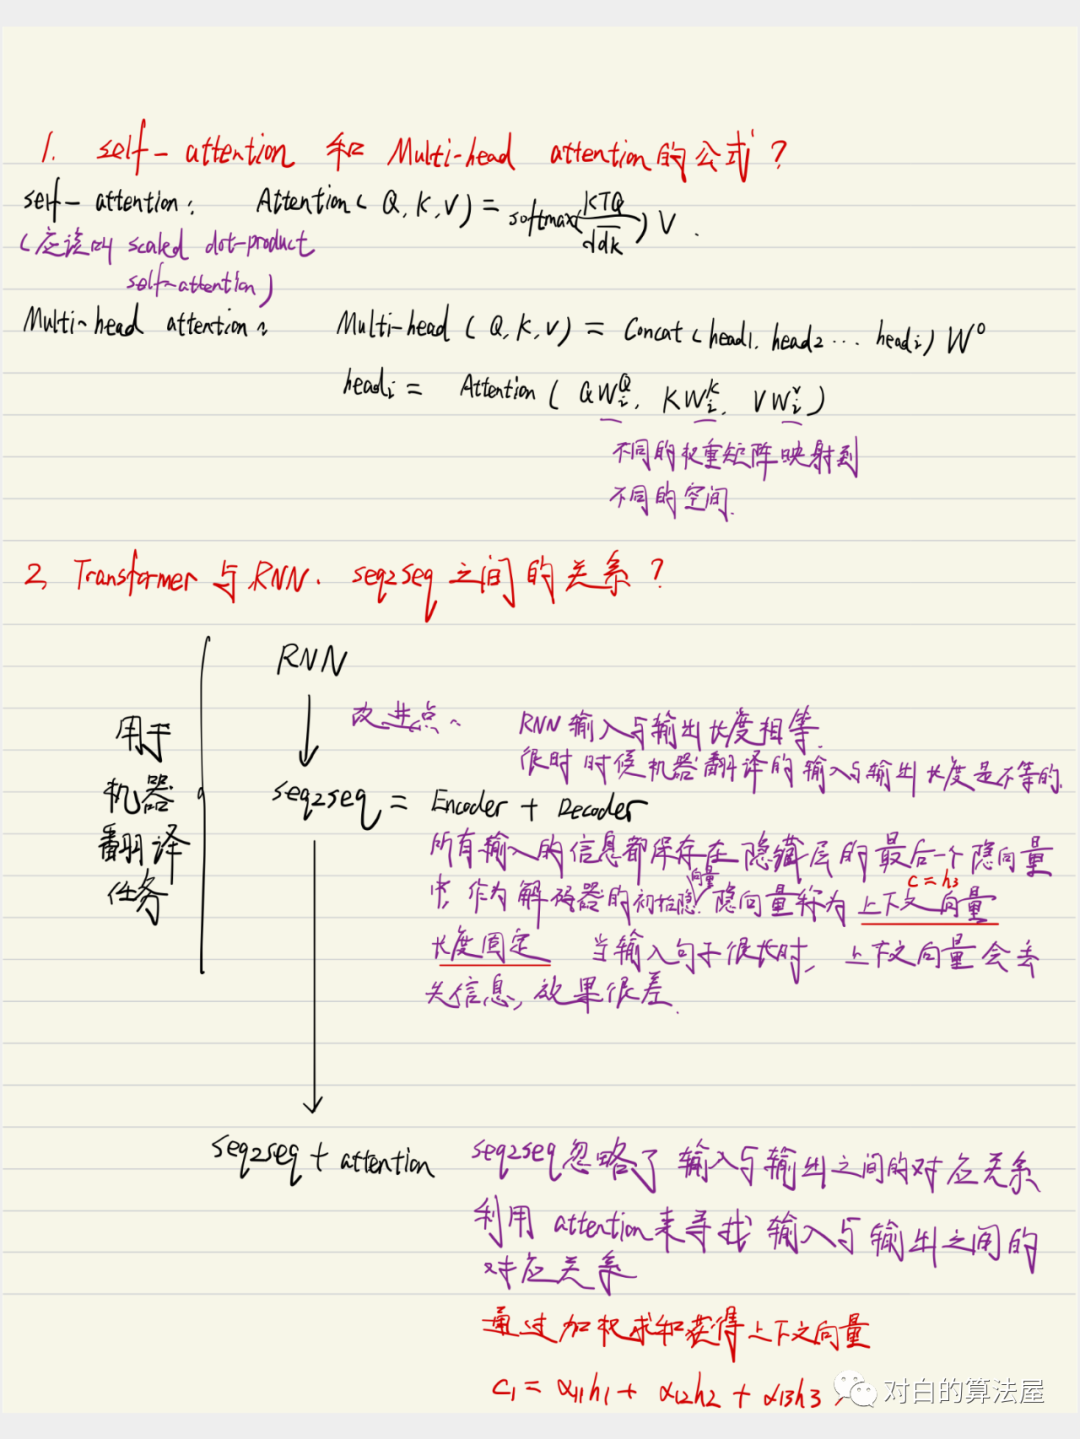 1. self-attention 和 Multi-head attention的公式？
self-attention: Attention(Q,K,V) = softmax(KTQ/√dk)V.
(应该叫 scaled dot-product
self-attention)
Multi-head attention: Multi-head(Q,K,V) = Concat(head1, head2 ... headi)W^O
headi = Attention(QW_i^Q, KW_i^K, VW_i^V)
不同的权重矩阵映射到
不同的空间.
2, Transformer 与 RNN. seq2seq 之间的关系？
用于
机器
翻译
任务
RNN
改进点、 RNN 输入与输出长度相等.
很时时候机器翻译的输入与输出长度是不等的.
seq2seq = Encoder + Decoder
所有输入的信息都保存在隐藏层的最后一个隐向量
中, 作为解码器的初始隐向量. 隐向量称为上下文向量
c=h3
长度固定 当输入句子很长时, 上下文向量会丢
失信息, 效果很差.
seq2seq + attention
seq2seq忽略了输入与输出之间的对应关系
利用 attention来寻找输入与输出之间的
对应关系
通过加权求和获得上下文向量
c1 = α11h1 + α12h2 + α13h3
对白的算法屋